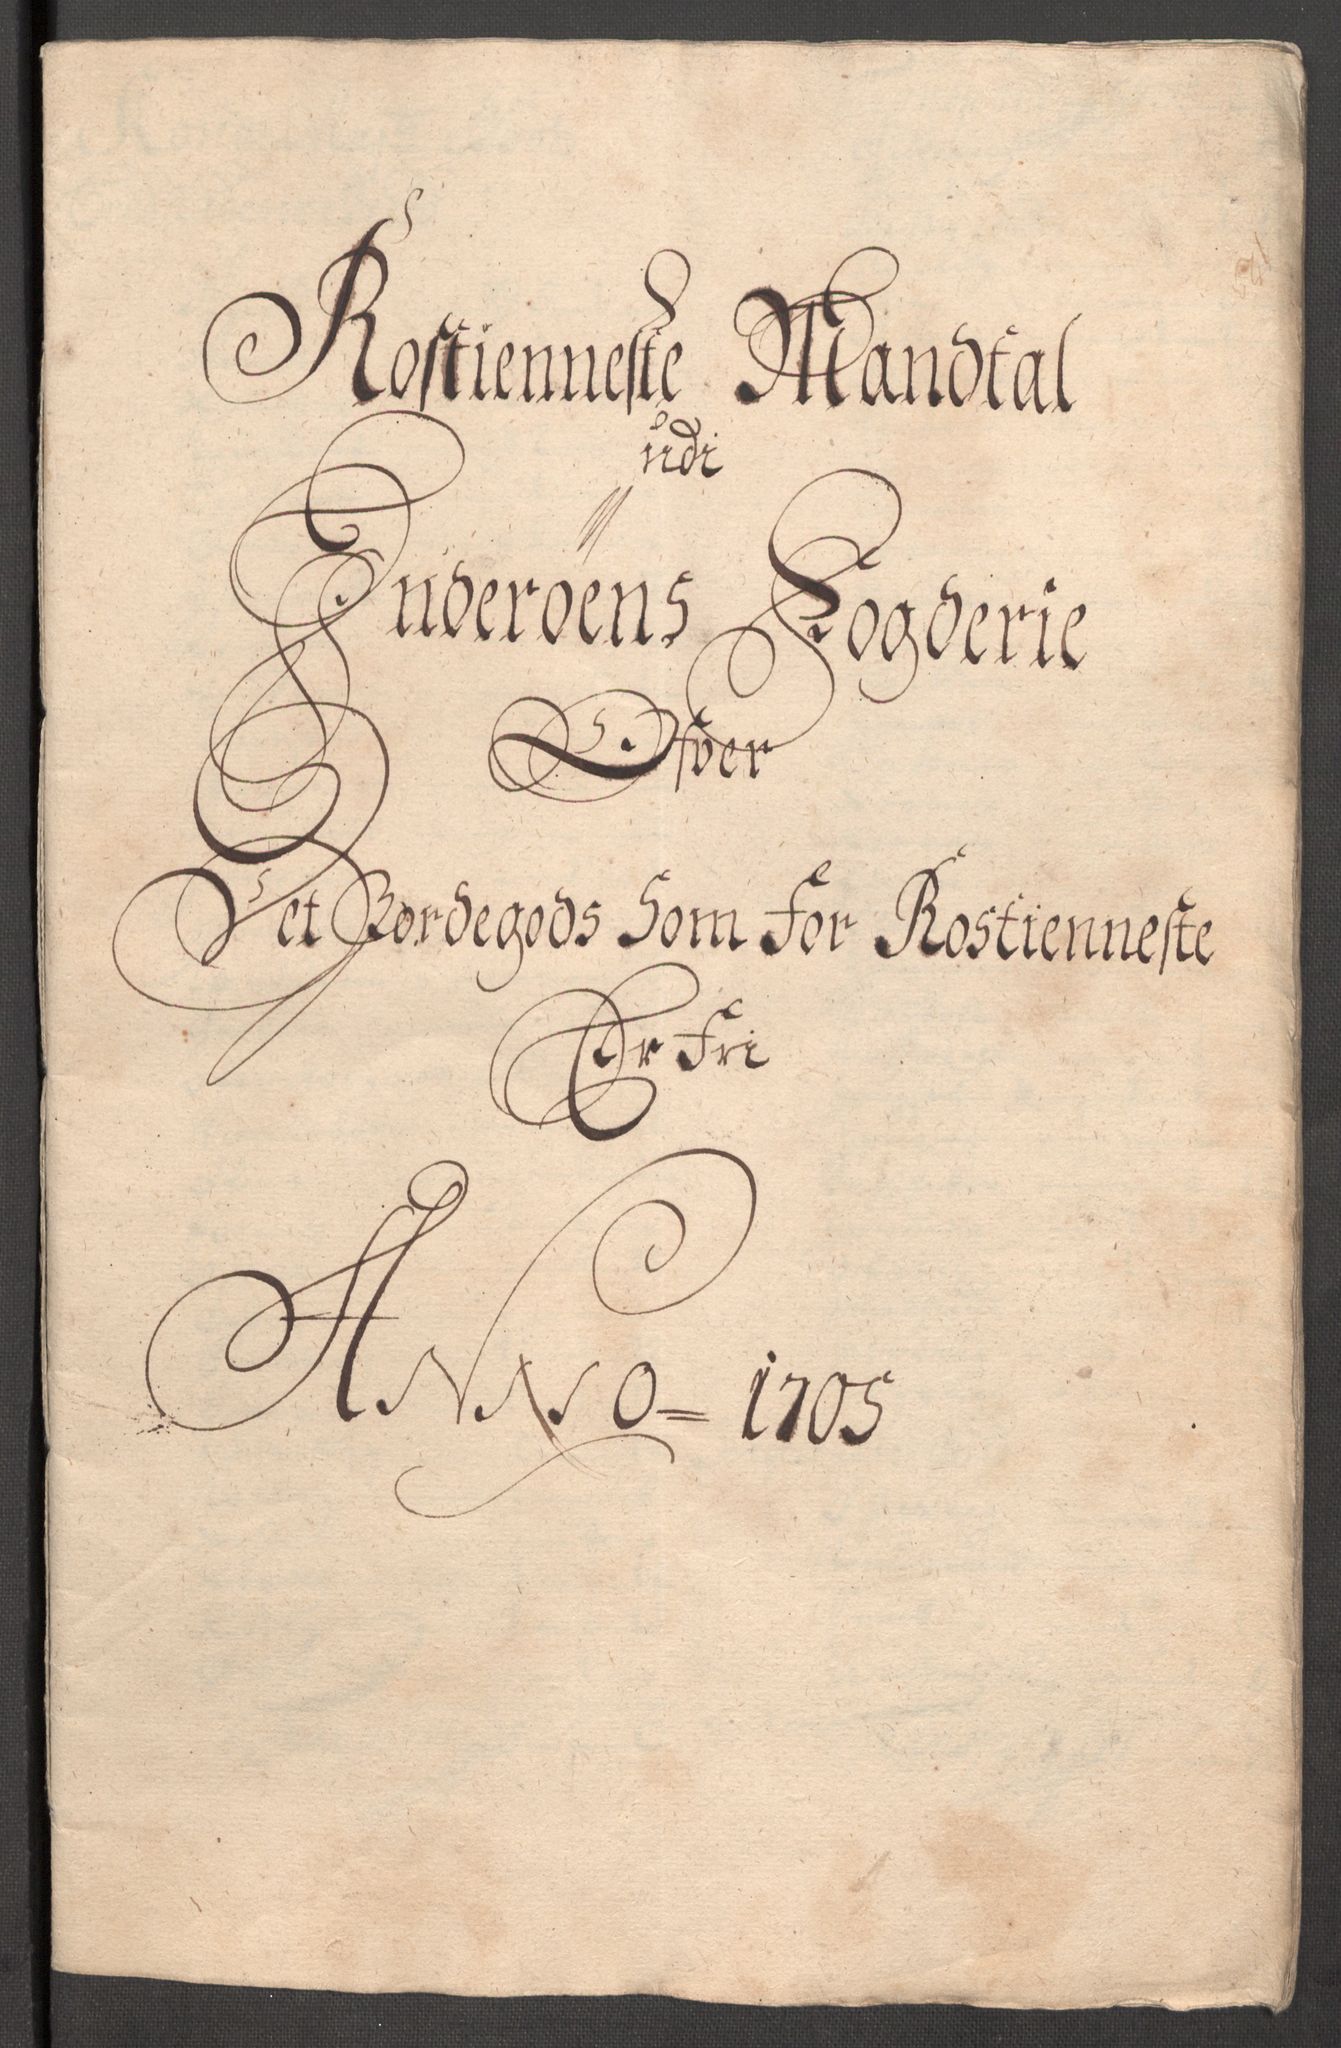 Rostienneste Mandtal
udi
Inderöens Fogderie
Ofver
Det Jordegods Som for Rostienneste
Er Fri
ANNO = 1705